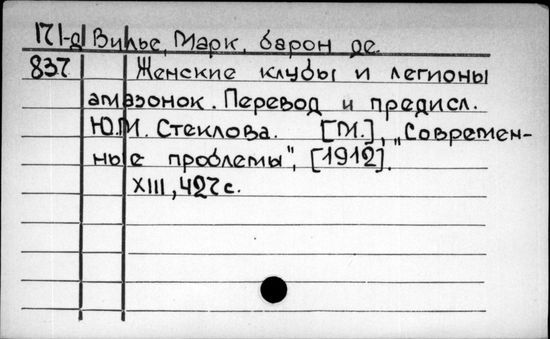 171-д Вилье, Марк, барон де.
837 Женские клубы и легионы
амазонок. Перевод и предисл.
Ю.М. Стеклова. [М.], „Современ-
ные проблемы", [1912].
XIII, 427 с.